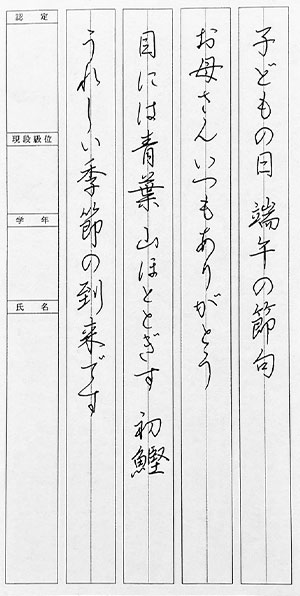 子どもの日 端午の節句
お母さんいつもありがとう
目には青葉 山ほととぎす 初鰹
うれしい季節の到来です
認定
現段級位
学年
氏名